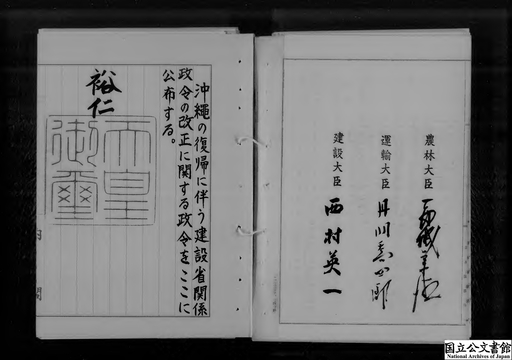 農林大臣
運輸大臣
丹羽喬四郎
建設大臣
西村英一
沖縄の復帰に伴う建設省関係
政令の改正に関する政令をここに
公布する。
裕仁
天皇
御璽
内
閣
国立公文書館
National Archives of Japan